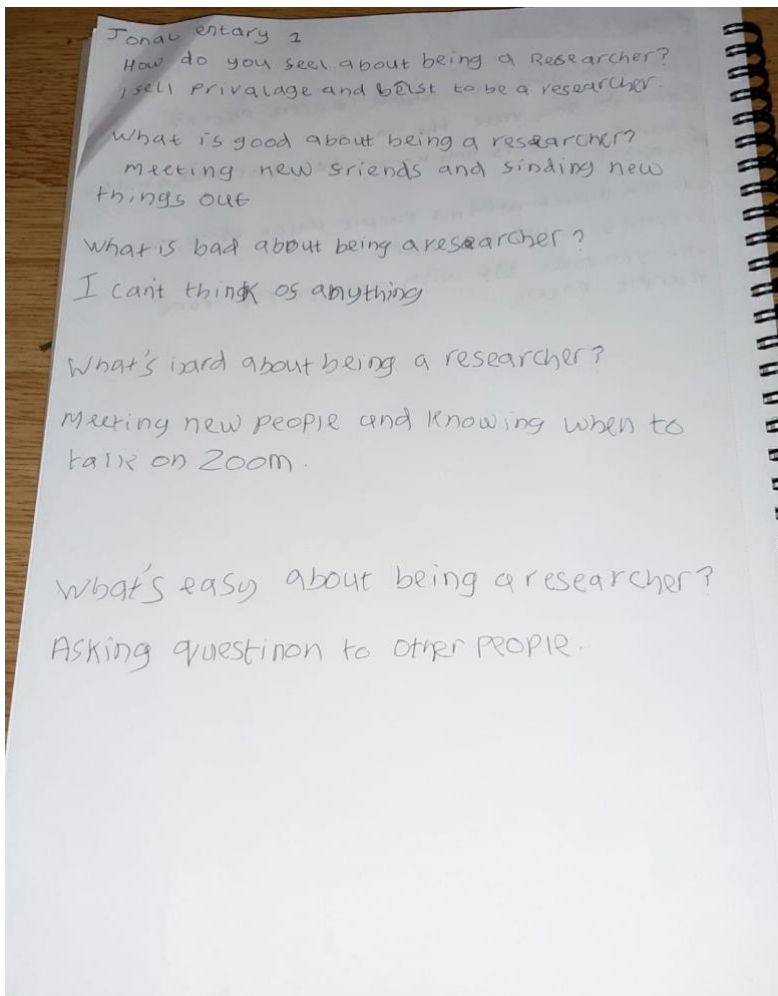 Jonal entary 1
How do you seel about being a Researcher?
I sell privalage and belst to be a researcher.
What is good about being a researcher?
meeting new sriends and sinding new
things out
What is bad about being a researcher?
I can't think os anything
What's hard about being a researcher?
Meeting new people and knowing when to
talk on Zoom.
What's easy about being a researcher?
Asking questinon to other people.